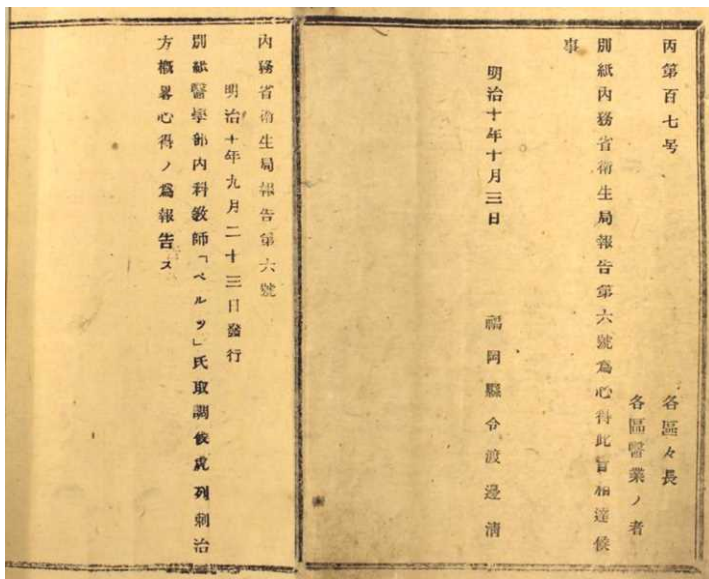 丙第百七号
各區々長
各區醫業ノ者
別紙内務省衛生局報告第六號爲心得此旨相達候
事
明治十年十月三日
福岡縣令渡邊清
内務省衛生局報告第六號
明治十年九月二十三日發行
別紙醫學部内科敎師「ベルツ」氏取調候虎列剌治
方槪畧心得ノ爲報告ス